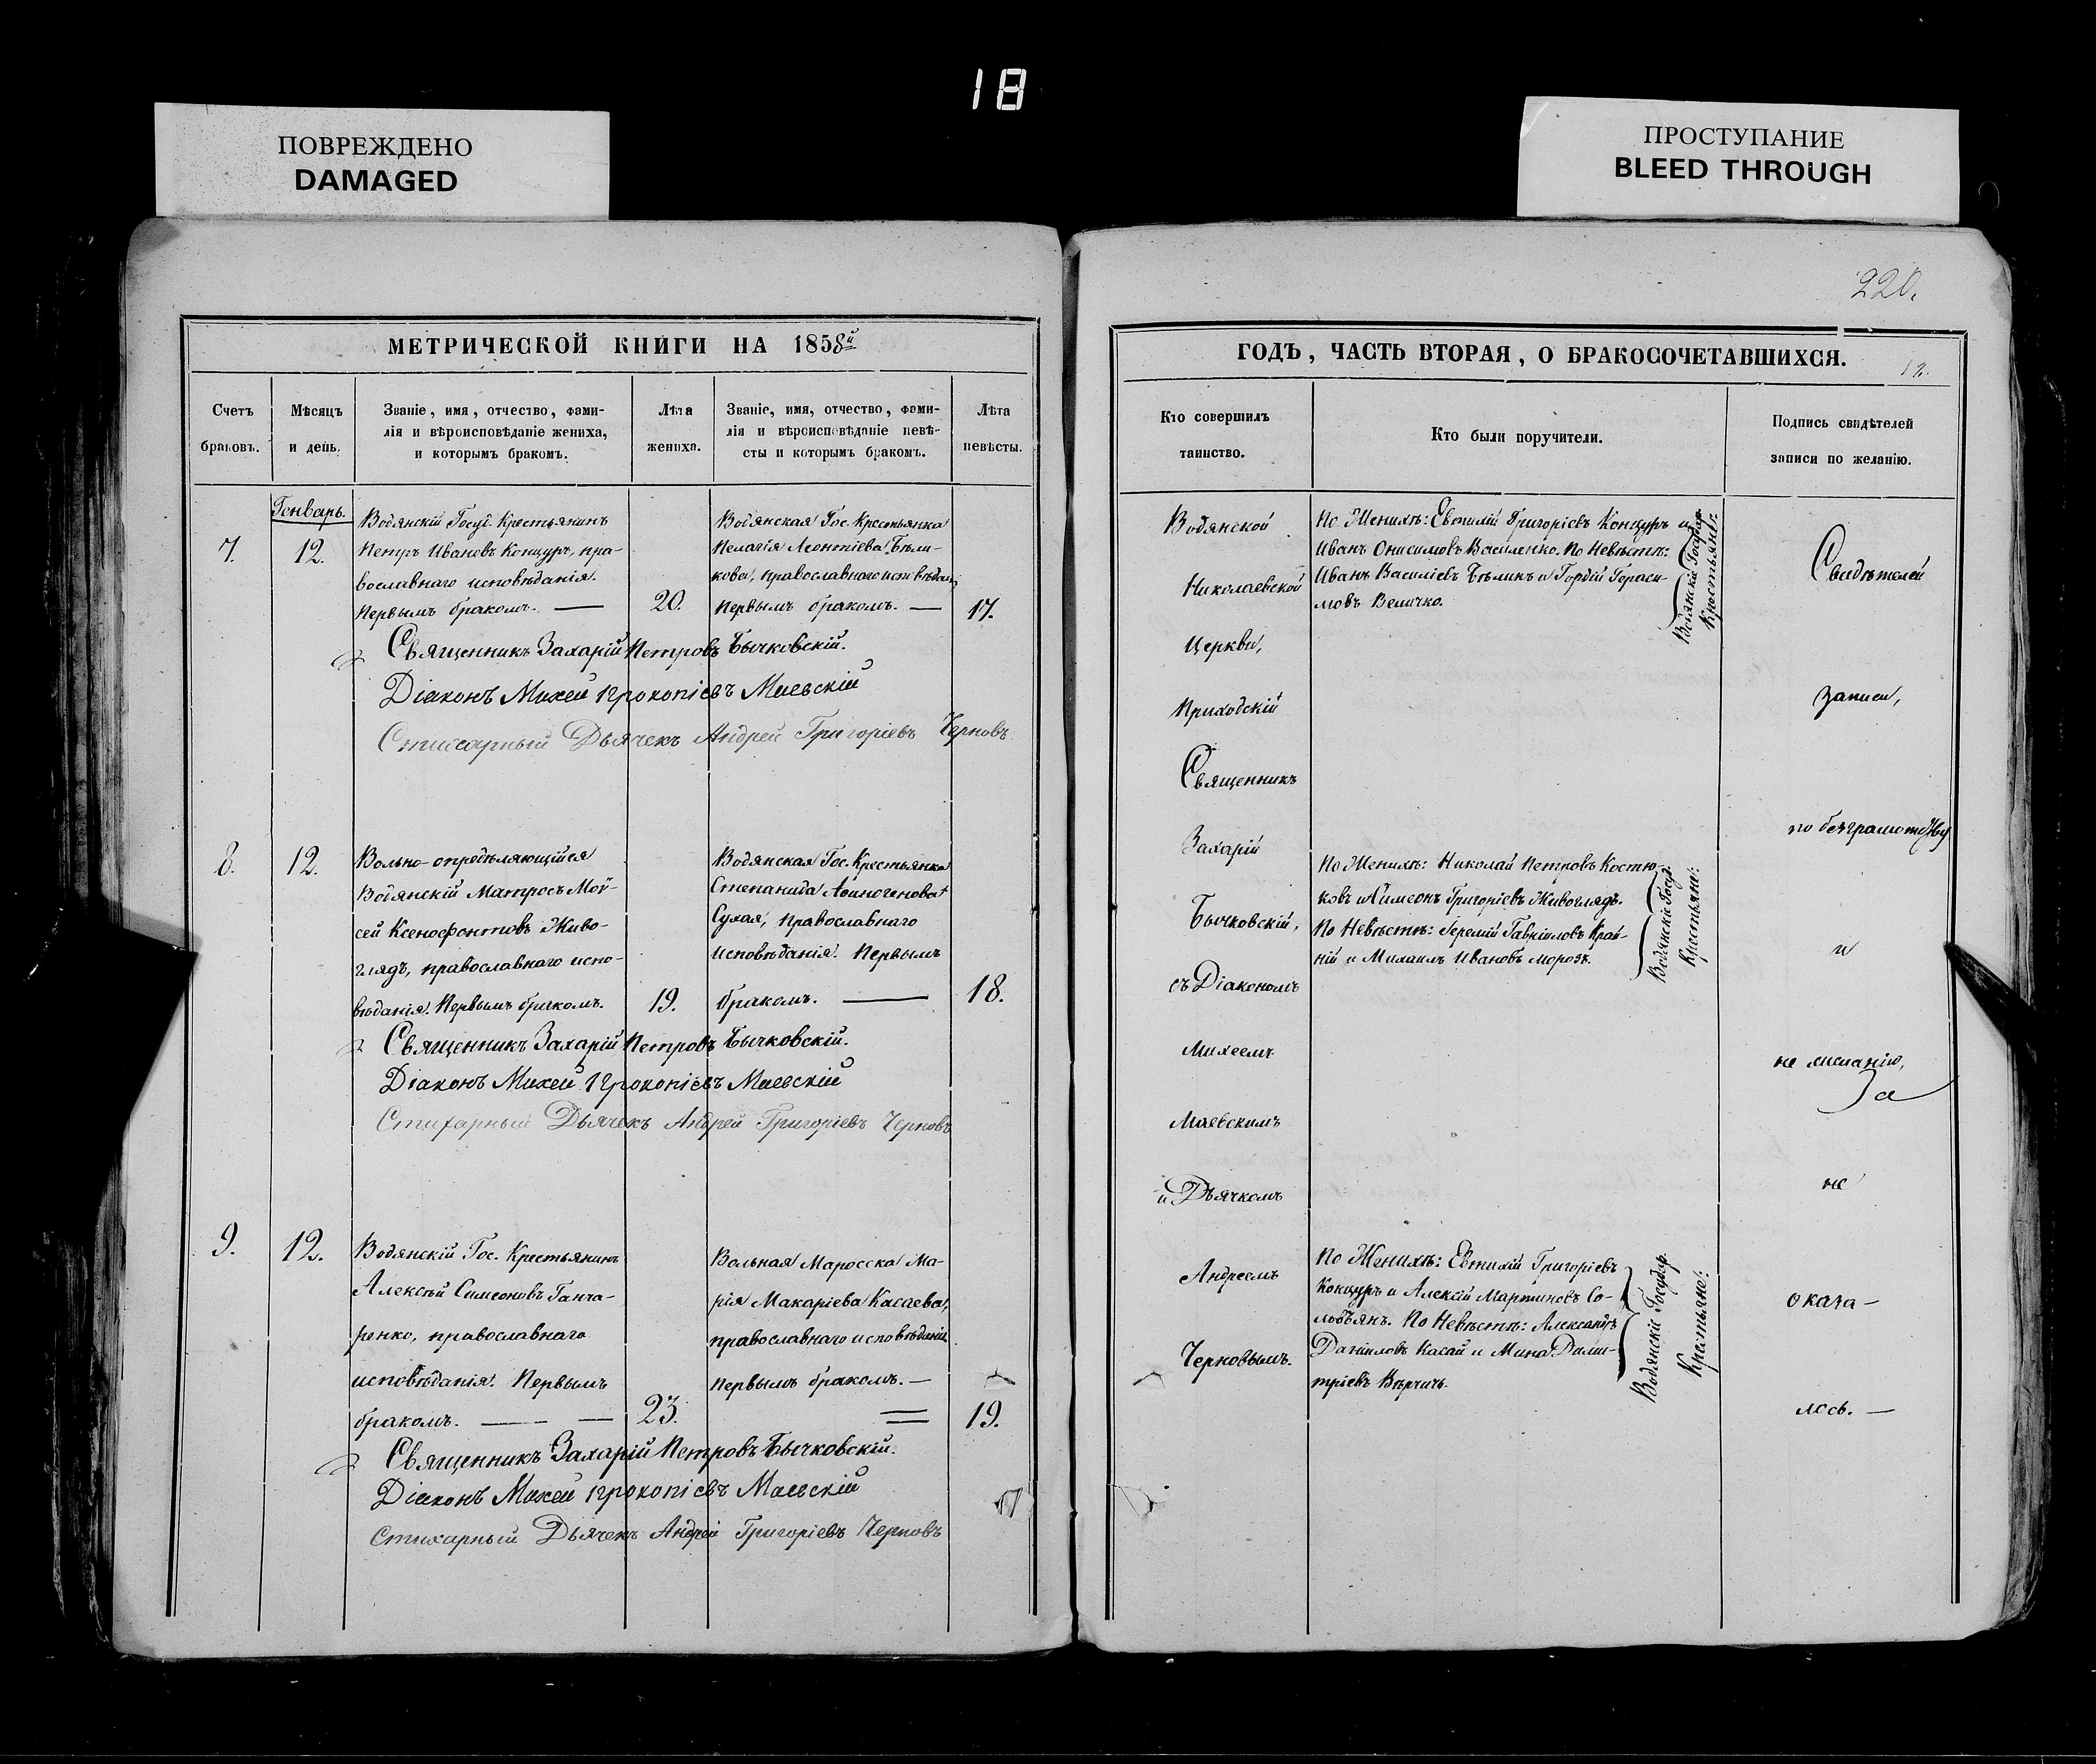 18
ПОВРЕЖДЕНО
DAMAGED
ПРОСТУПАНИЕ
BLEED THROUGH
МЕТРИЧЕСКОЙ КНИГИ НА 1858й
Счетъ браковъ.
Мѣсяцъ и день.
Званіе, имя, отчество, фами-
лія и вѣроисповѣданіе жениха,
и которымъ бракомъ.
Лѣта жениха.
Званіе, имя, отчество, фами-
лія и вѣроисповѣданіе невѣ-
сты и которымъ бракомъ.
Лѣта невѣсты.
Генварь.
7.
12.
Водянскій Госуд. Крестьянинъ
Петръ Ивановъ Концуръ, пра-
вославнаго исповѣданія.
Первымъ бракомъ. —
20.
Водянская Гос. Крестьянка
Пелагія Леонтіева Бѣли-
кова, православнаго исповѣдан.
Первымъ бракомъ. —
17.
Священникъ Захарій Петровъ Бычковскій.
Діаконъ Михей Прокопіевъ Маевскій
Стихарный Дьячекъ Андрей Григоріевъ Черновъ
8.
12.
Вольно-опредѣляющійся
Водянскій Матросъ Мой-
сей Ксенофонтовъ Живо-
глядъ, православнаго испо-
вѣданія. Первымъ бракомъ.
19.
Водянская Гос. Крестьянка
Степанида Аѳиногенова
Сухая, Православнаго
исповѣданія. Первымъ
бракомъ. —
18.
Священникъ Захарій Петровъ Бычковскій.
Діаконъ Михей Прокопіевъ Маевскій
Стихарный Дьячекъ Андрей Григоріевъ Черновъ
9.
12.
Водянскій Гос. Крестьянинъ
Алексѣй Симеоновъ Ганча-
ренко, православнаго
исповѣданія. Первымъ
бракомъ. — —
23.
Вольная Матроска Ма-
рія Макаріева Касаева,
православнаго исповѣданія
первымъ бракомъ. —
19.
Священникъ Захарій Петровъ Бычковскій.
Діаконъ Михей Прокопіевъ Маевскій
Стихарный Дьячекъ Андрей Григоріевъ Черновъ
220.
ГОДЪ, ЧАСТЬ ВТОРАЯ, О БРАКОСОЧЕТАВШИХСЯ.
Кто совершилъ
таинство.
Кто были поручители.
Подпись свидѣтелей
записи по желанію.
Водянской
Николаевской
Церкви,
Приходскій
Священникъ
Захарій
Бычковскій,
съ Діакономъ
Михеемъ
Маевскимъ
и Дьячкомъ
Андреемъ
Черновымъ.
По Женихѣ: Евтихій Григоріевъ Концуръ и
Иванъ Онисимовъ Василенко. По Невѣстѣ:
Иванъ Василіевъ Бѣликъ и Гордій Гераси-
мовъ Величко.
Водянскіе Государ.
Крестьяне:
По Женихѣ: Николай Петровъ Костю-
ковъ и Симеонъ Григоріевъ Живоглядъ.
По Невѣстѣ: Іеремій Гавріиловъ Край-
ній и Михаилъ Ивановъ Морозъ.
Водянскіе Госуд.
Крестьяне:
По Женихѣ: Евтихій Григоріевъ
Концуръ и Алексій Мартиновъ Со-
ловьянъ. По Невѣстѣ: Александръ
Даніиловъ Касай и Мина Дими-
тріевъ
Водянскіе Государ.
Крестьяне:
Свидѣтелей
записи,
по безграмотству
и
не желанію,
За
не
оказа-
лось. —